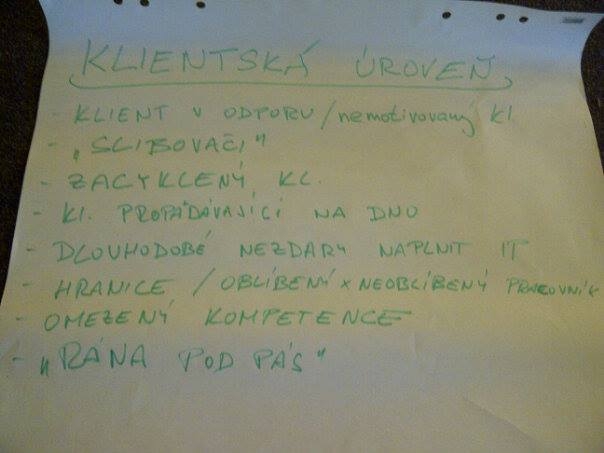 KLIENTSKÁ ÚROVEŇ
- KLIENT V ODPORU / nemotivovaný kl.
- „SLIBOVAČI"
- ZACYKLENÝ KL.
- Kl. PROPADÁVAJÍCÍ NA DNO
- DLOUHODOBÉ NEZDARY NAPLNIT IP
- HRANICE / OBLÍBENÝ x NEOBLÍBENÝ PRACOVNÍK
- OMEZENÝ KOMPETENCE
- „RÁNA POD PÁS"